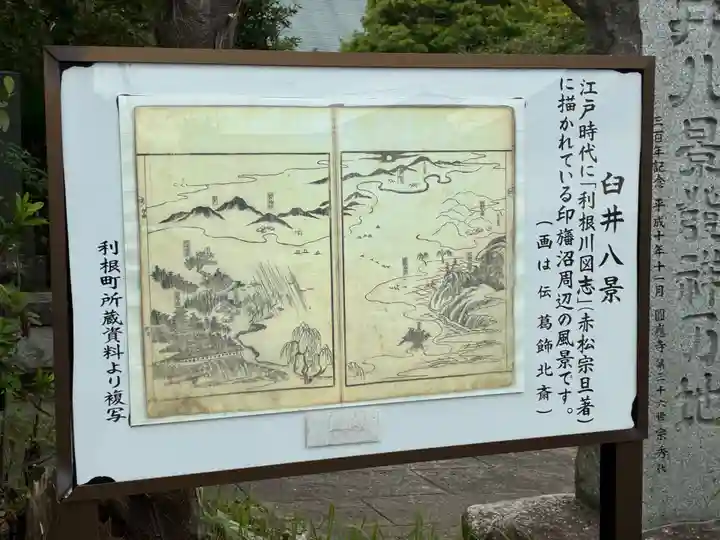 臼井八景
江戸時代に「利根川図志」(赤松宗旦著)
に描かれている印旛沼周辺の風景です。
(画は伝 葛飾北斎)
利根町所蔵資料より複写
井八景発祥乃地
三百年記念 平成十年十一月 圓應寺第二十六世宗秀代